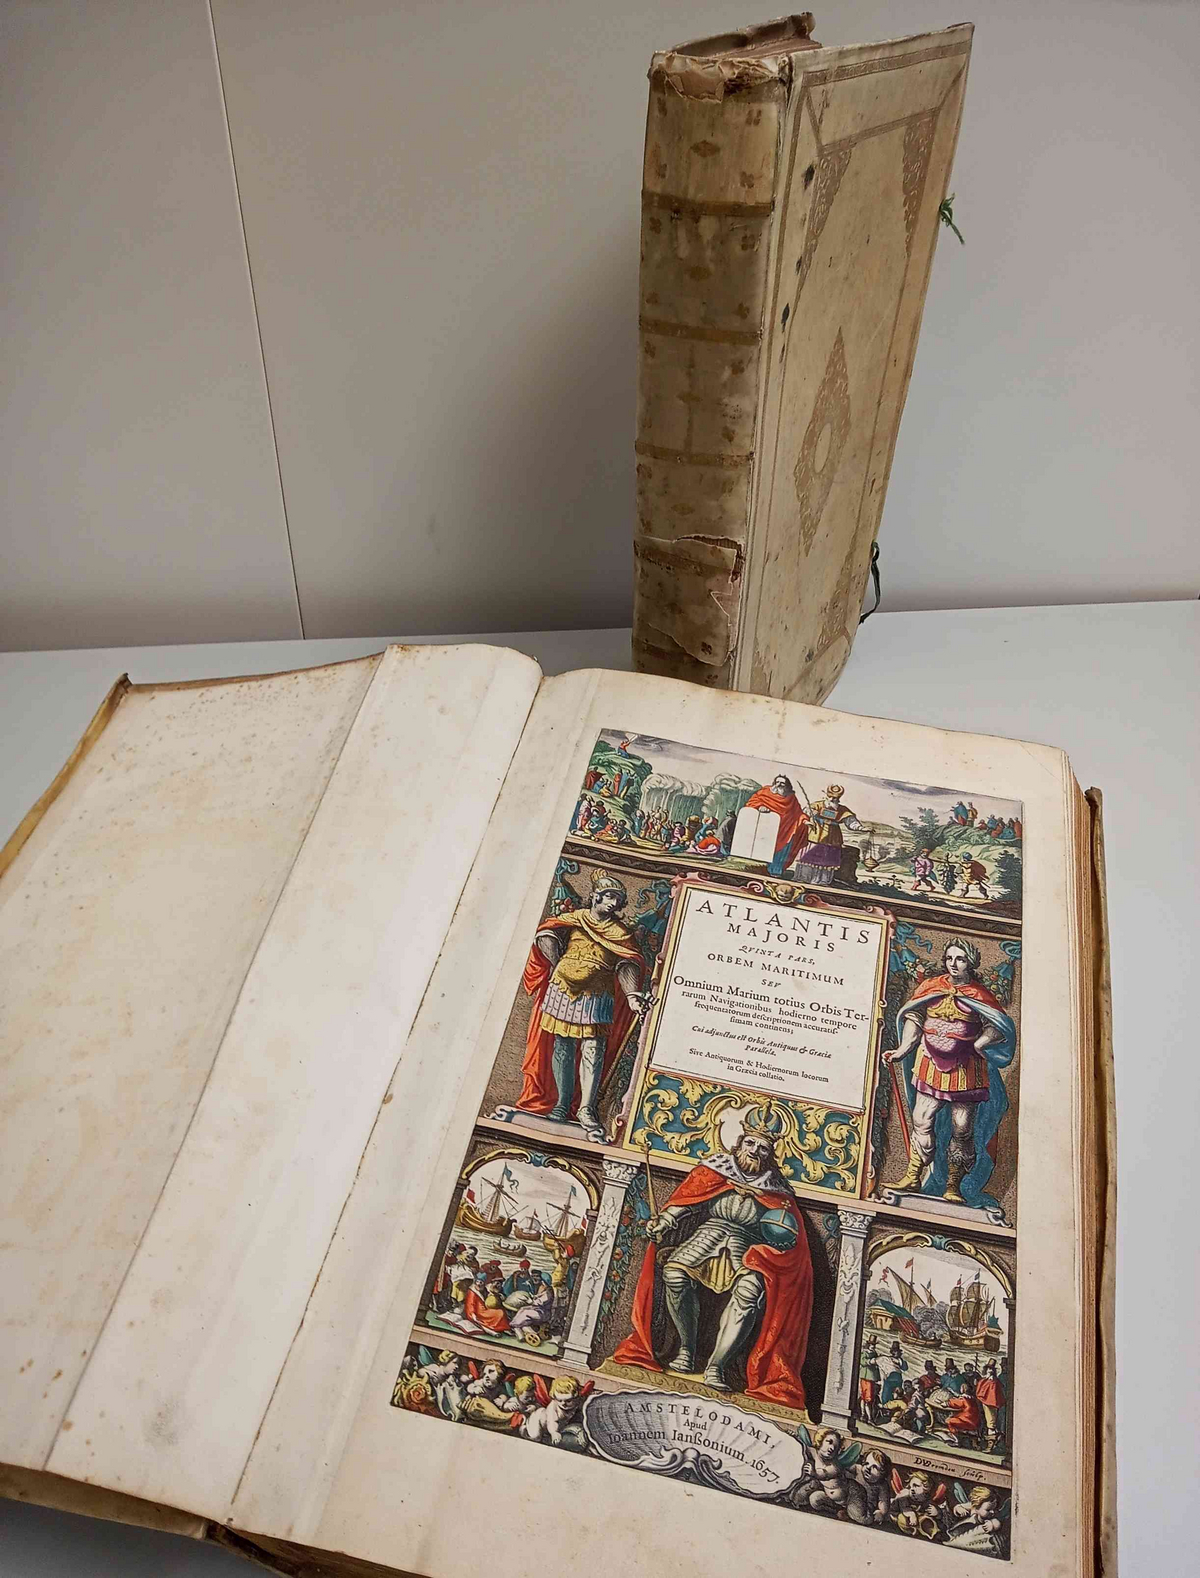 ATLANTIS
MAJORIS
QVINTA PARS,
ORBEM MARITIMUM
SEV
Omnium Marium totius Orbis Ter-
rarum Navigationibus hodierno tempore
frequentatorum descriptionem accuratis-
simam continens;
Cui adjunctus est Orbis Antiquus & Græciæ
Parallela.
Sive Antiquorum & Hodiernorum locorum
in Græcia collatio.
AMSTELODAMI,
Apud
Ioannem Janßonium. 1657.